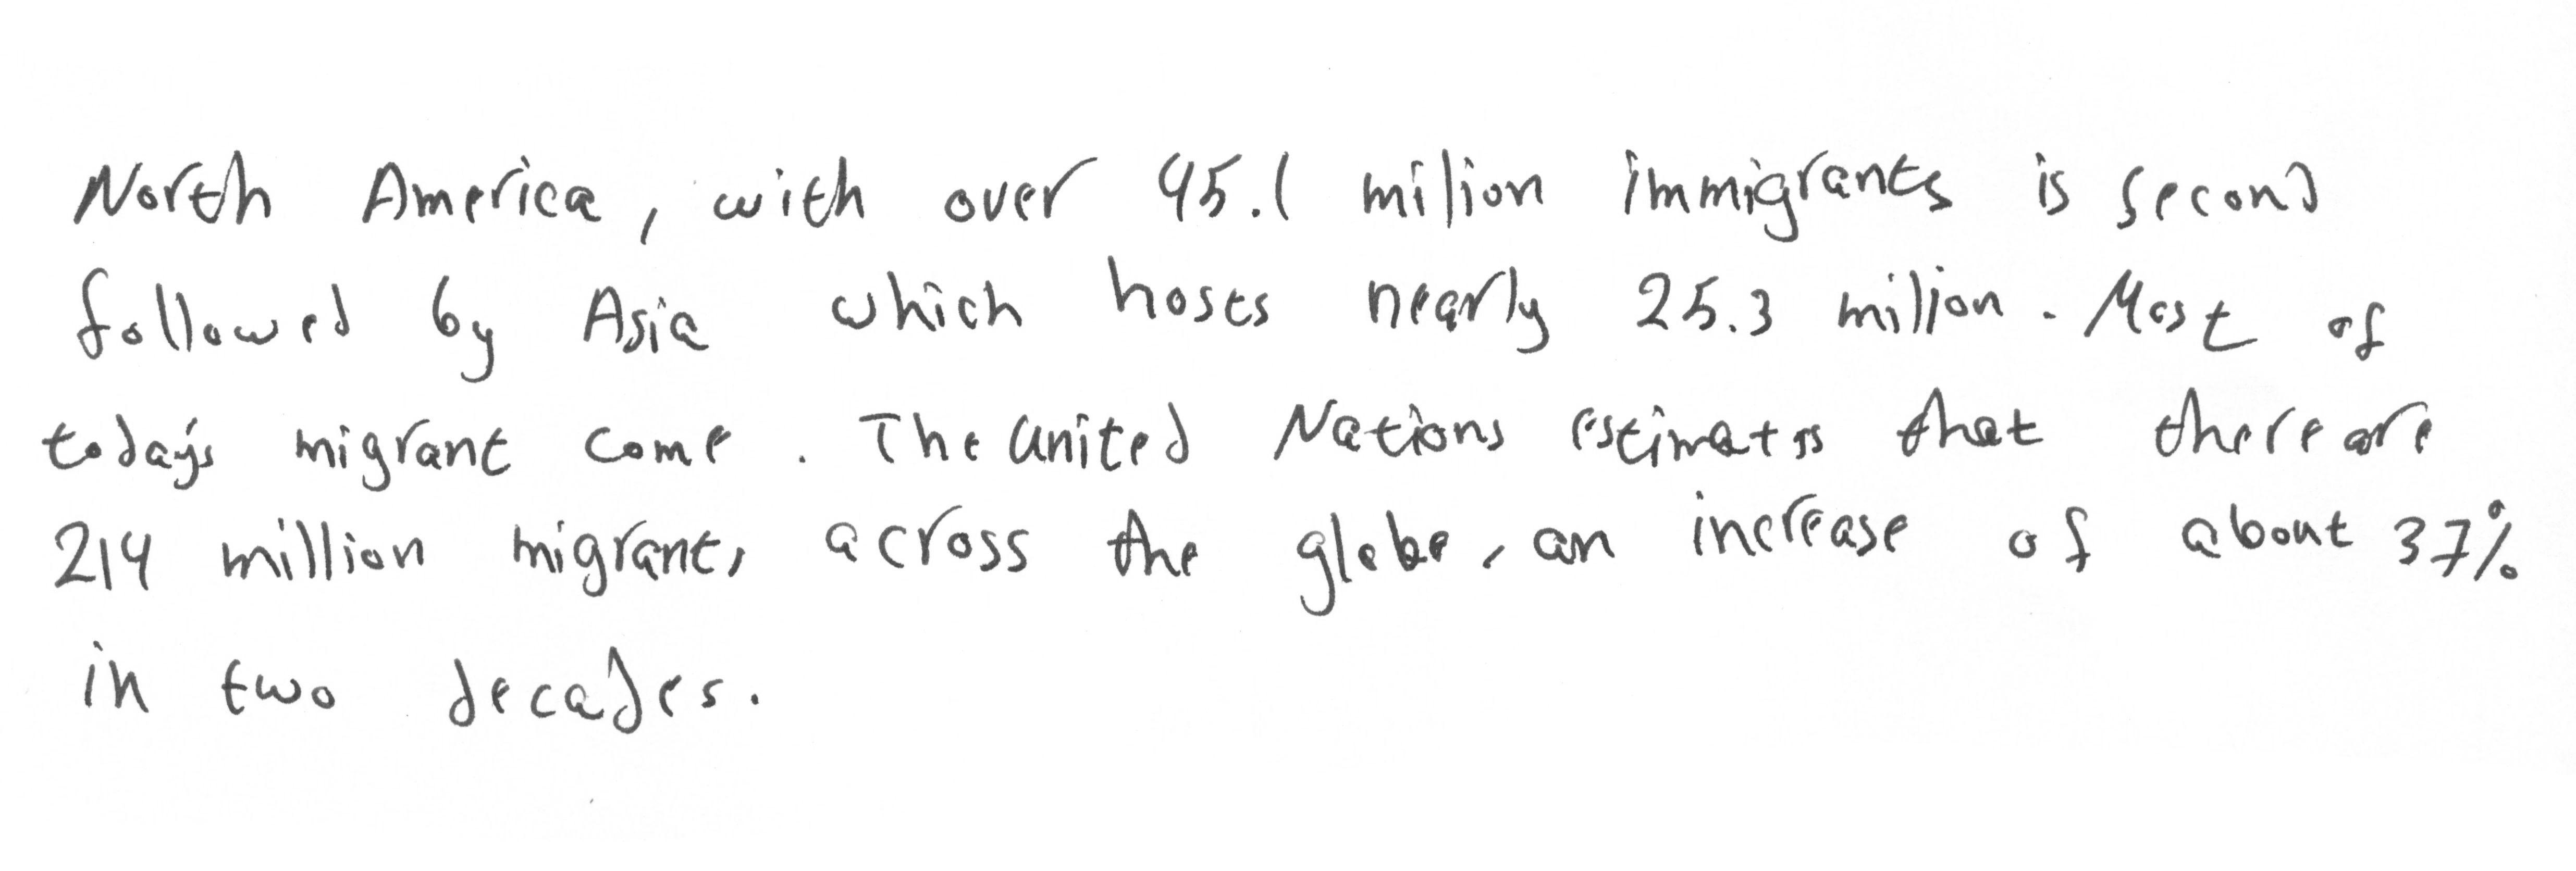 North America, with over 45.1 milion immigrants is second
followed by Asia which hosts nearly 25.3 milion. Most of
today's migrant come. The United Nations estimates that there are
214 million migrants across the globe, an increase of about 37%
in two decades.